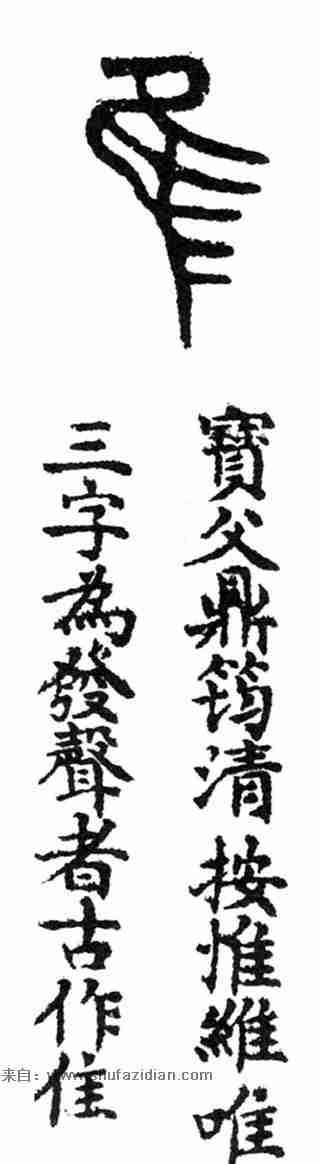 隹
寶父鼎筠清 按惟維唯
三字為發聲者古作隹
来自：www.shufazidian.com